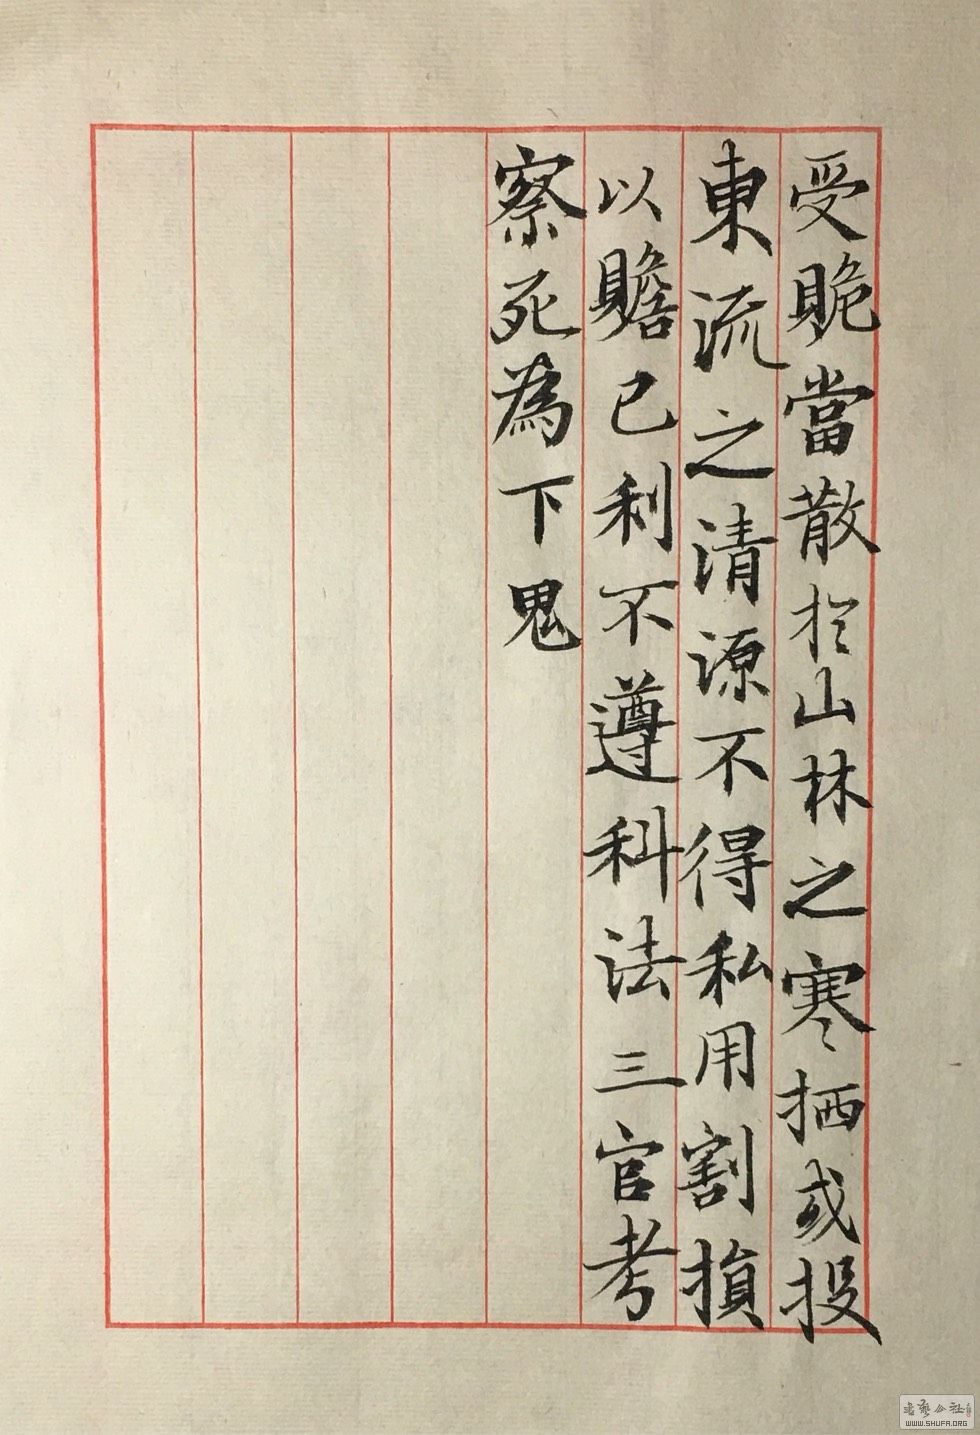 受賤當散於山林之寒栖或投
東流之清源不得私用割損
以贍己利不遵科法三官考
察死為下鬼
書藝公社
WWW.SHUFA.ORG